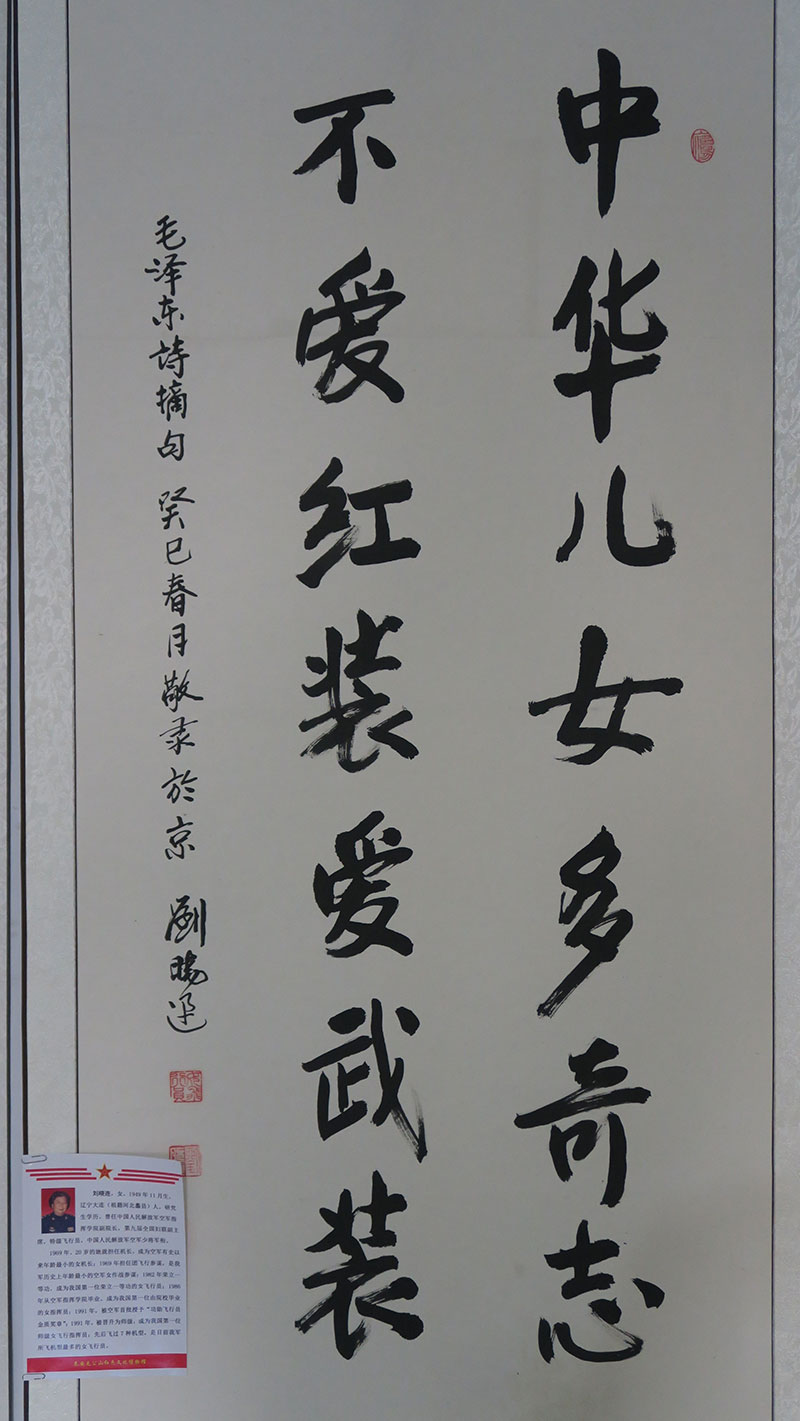 中华儿女多奇志
不爱红装爱武装
毛泽东詩摘句 癸巳春月敬录於京 劉晓连
刘晓连，女，1949年11月生，
辽宁大连（祖籍河北蠡县）人，研究
生学历，曾任中国人民解放军空军指
挥学院副院长，第九届全国妇联副主
席，特级飞行员，中国人民解放军空军少将军衔。
1969年，20岁的她就担任机长，成为空军有史以
来年龄最小的女机长；1969年担任团飞行参谋，是我
军历史上年龄最小的空军女作战参谋；1982年荣立一
等功，成为我国第一位荣立一等功的女飞行员；1986
年从空军指挥学院毕业，成为我国第一位由院校毕业
的女指挥员；1991年，被空军首批授于“功勋飞行员
金质奖章”；1991年，被晋升为师级，成为我国第一位
师级女飞行指挥员；先后飞过7种机型，是目前我军
所飞机型最多的女飞行员。